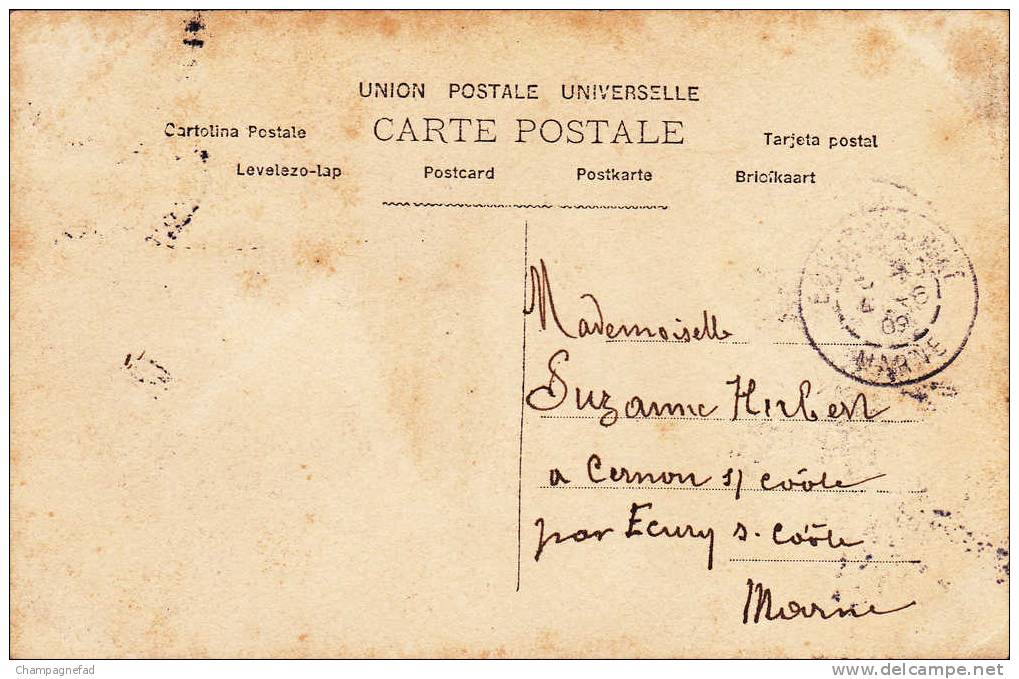 UNION POSTALE UNIVERSELLE
CARTE POSTALE
Cartolina Postale
Tarjeta postal
Levelezo-lap
Postcard
Postkarte
Briefkaart
09
MARNE
Mademoiselle
Suzanne Herbert
a Cernon s/ Coôle
par Ecury s. Coôle
Marne
Champagnefad
http://www.delcampe.net